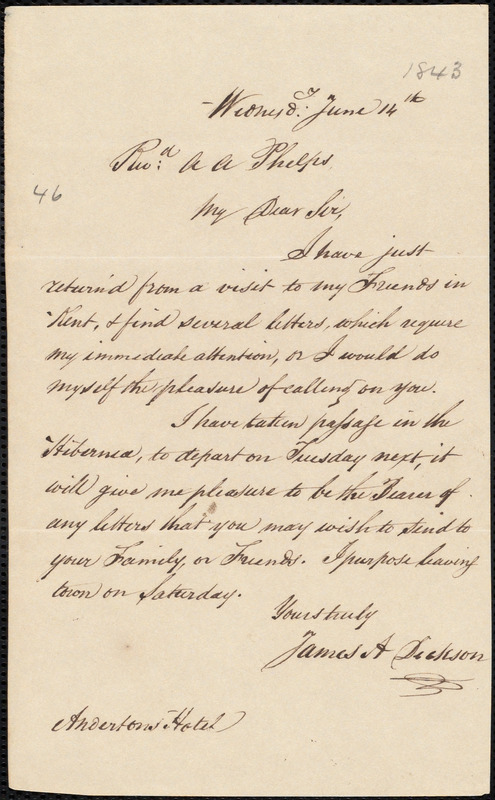 1843
Wednesdy. June 14th
Revd: A A Phelps
46
My Dear Sir,
I have just
return'd from a visit to my Friends in
Kent, & find several letters, which require
my immediate attention, or I would do
myself the pleasure of calling on you.
I have taken passage in the
Hibernia, to depart on Tuesday next, it
will give me pleasure to be the Bearer of
any letters that you may wish to send to
your Family, or Friends. I purpose leaving
town on Saturday.
Yours truly
James A Dickson
Anderton's Hotel